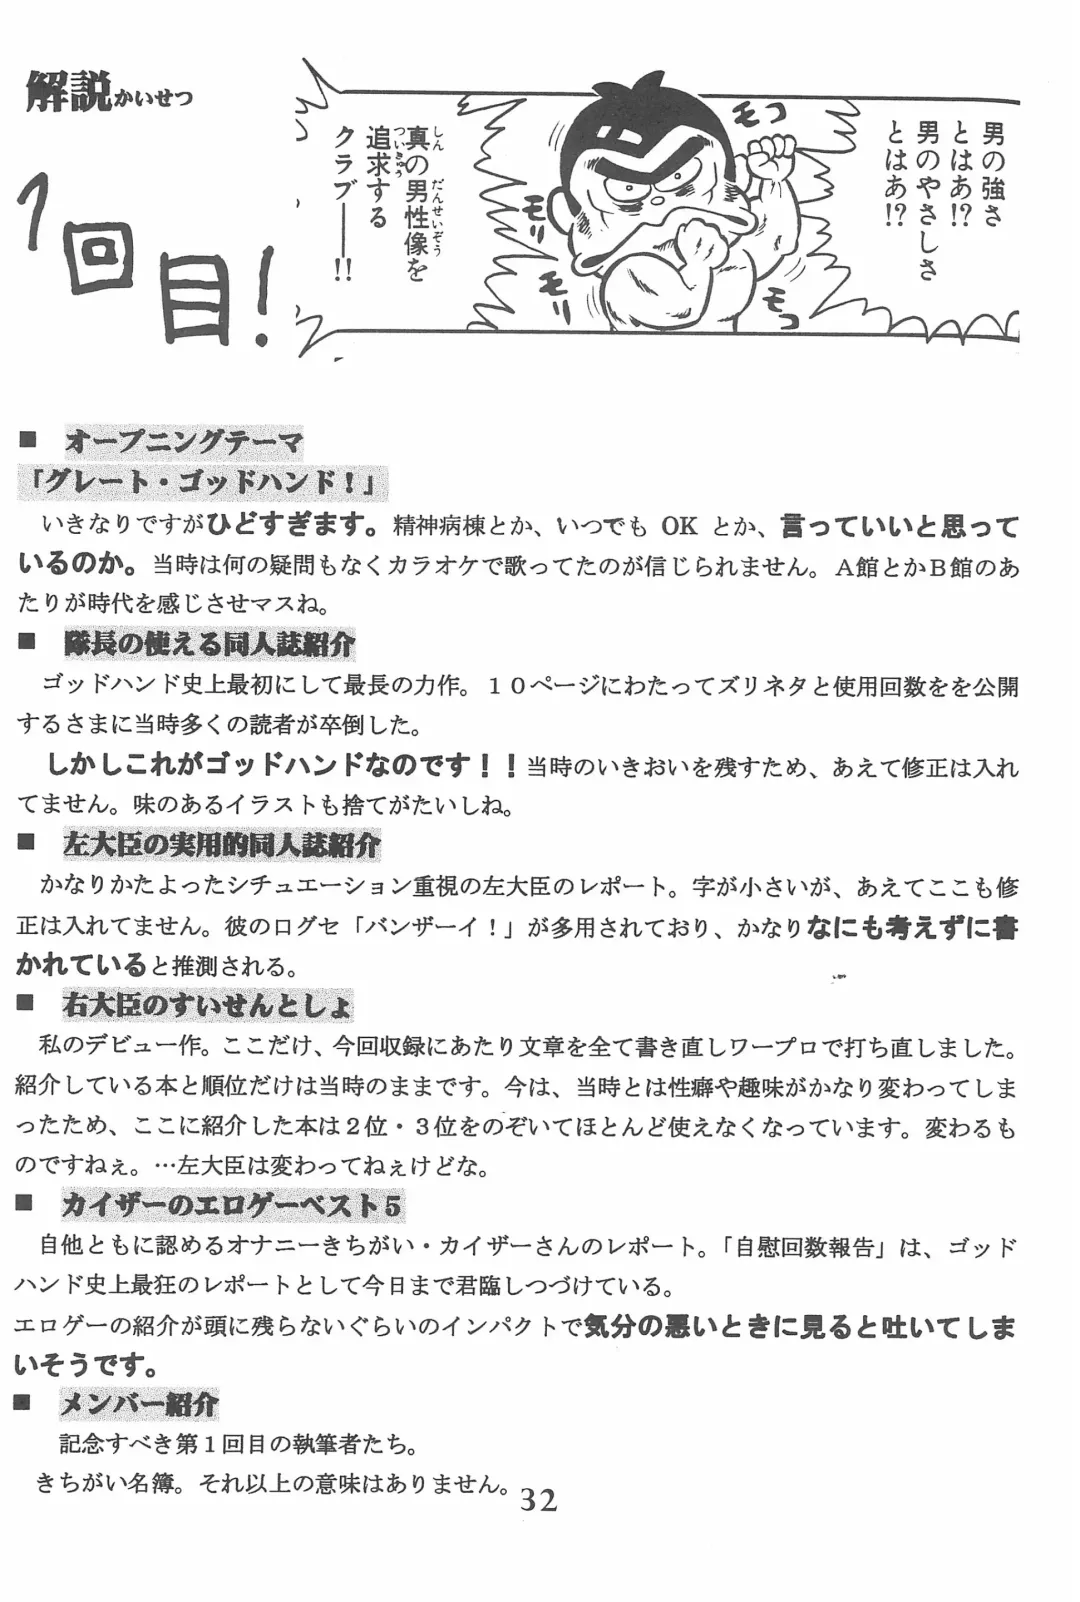 解説かいせつ
1回目!
男の強さ
とはあ!?
男のやさしさ
とはあ!?
モコ
モリ
モリ
モコ
真の男性像を
しん だんせいぞう
追求する
ついきゅう
クラブ――!!
■ オープニングテーマ
「グレート・ゴッドハンド!」
いきなりですがひどすぎます。精神病棟とか、いつでも OK とか、言っていいと思って
いるのか。当時は何の疑問もなくカラオケで歌ってたのが信じられません。A館とかB館のあ
たりが時代を感じさせマスね。
■ 隊長の使える同人誌紹介
ゴッドハンド史上最初にして最長の力作。10ページにわたってズリネタと使用回数をを公開
するさまに当時多くの読者が卒倒した。
しかしこれがゴッドハンドなのです!!当時のいきおいを残すため、あえて修正は入れ
てません。味のあるイラストも捨てがたいしね。
■ 左大臣の実用的同人誌紹介
かなりかたよったシチュエーション重視の左大臣のレポート。字が小さいが、あえてここも修
正は入れてません。彼のログセ「バンザーイ!」が多用されており、かなりなにも考えずに書
かれていると推測される。
■ 右大臣のすいせんとしょ
私のデビュー作。ここだけ、今回収録にあたり文章を全て書き直しワープロで打ち直しました。
紹介している本と順位だけは当時のままです。今は、当時とは性癖や趣味がかなり変わってしま
ったため、ここに紹介した本は2位・3位をのぞいてほとんど使えなくなっています。変わるも
のですねぇ。…左大臣は変わってねぇけどな。
■ カイザーのエロゲーベスト5
自他ともに認めるオナニーきちがい・カイザーさんのレポート。「自慰回数報告」は、ゴッド
ハンド史上最狂のレポートとして今日まで君臨しつづけている。
エロゲーの紹介が頭に残らないぐらいのインパクトで気分の悪いときに見ると吐いてしま
いそうです。
■ メンバー紹介
記念すべき第1回目の執筆者たち。
きちがい名簿。それ以上の意味はありません。
32